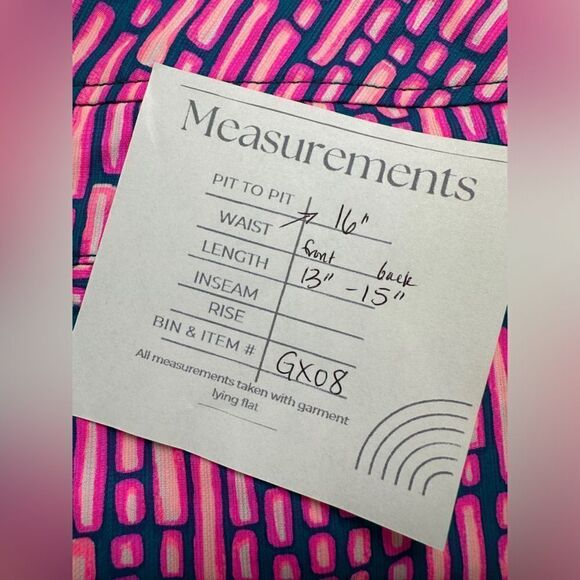 Measurements
PIT TO PIT
WAIST 16"
LENGTH front 13" - back 15"
INSEAM
RISE
BIN & ITEM # GX08
All measurements taken with garment
lying flat